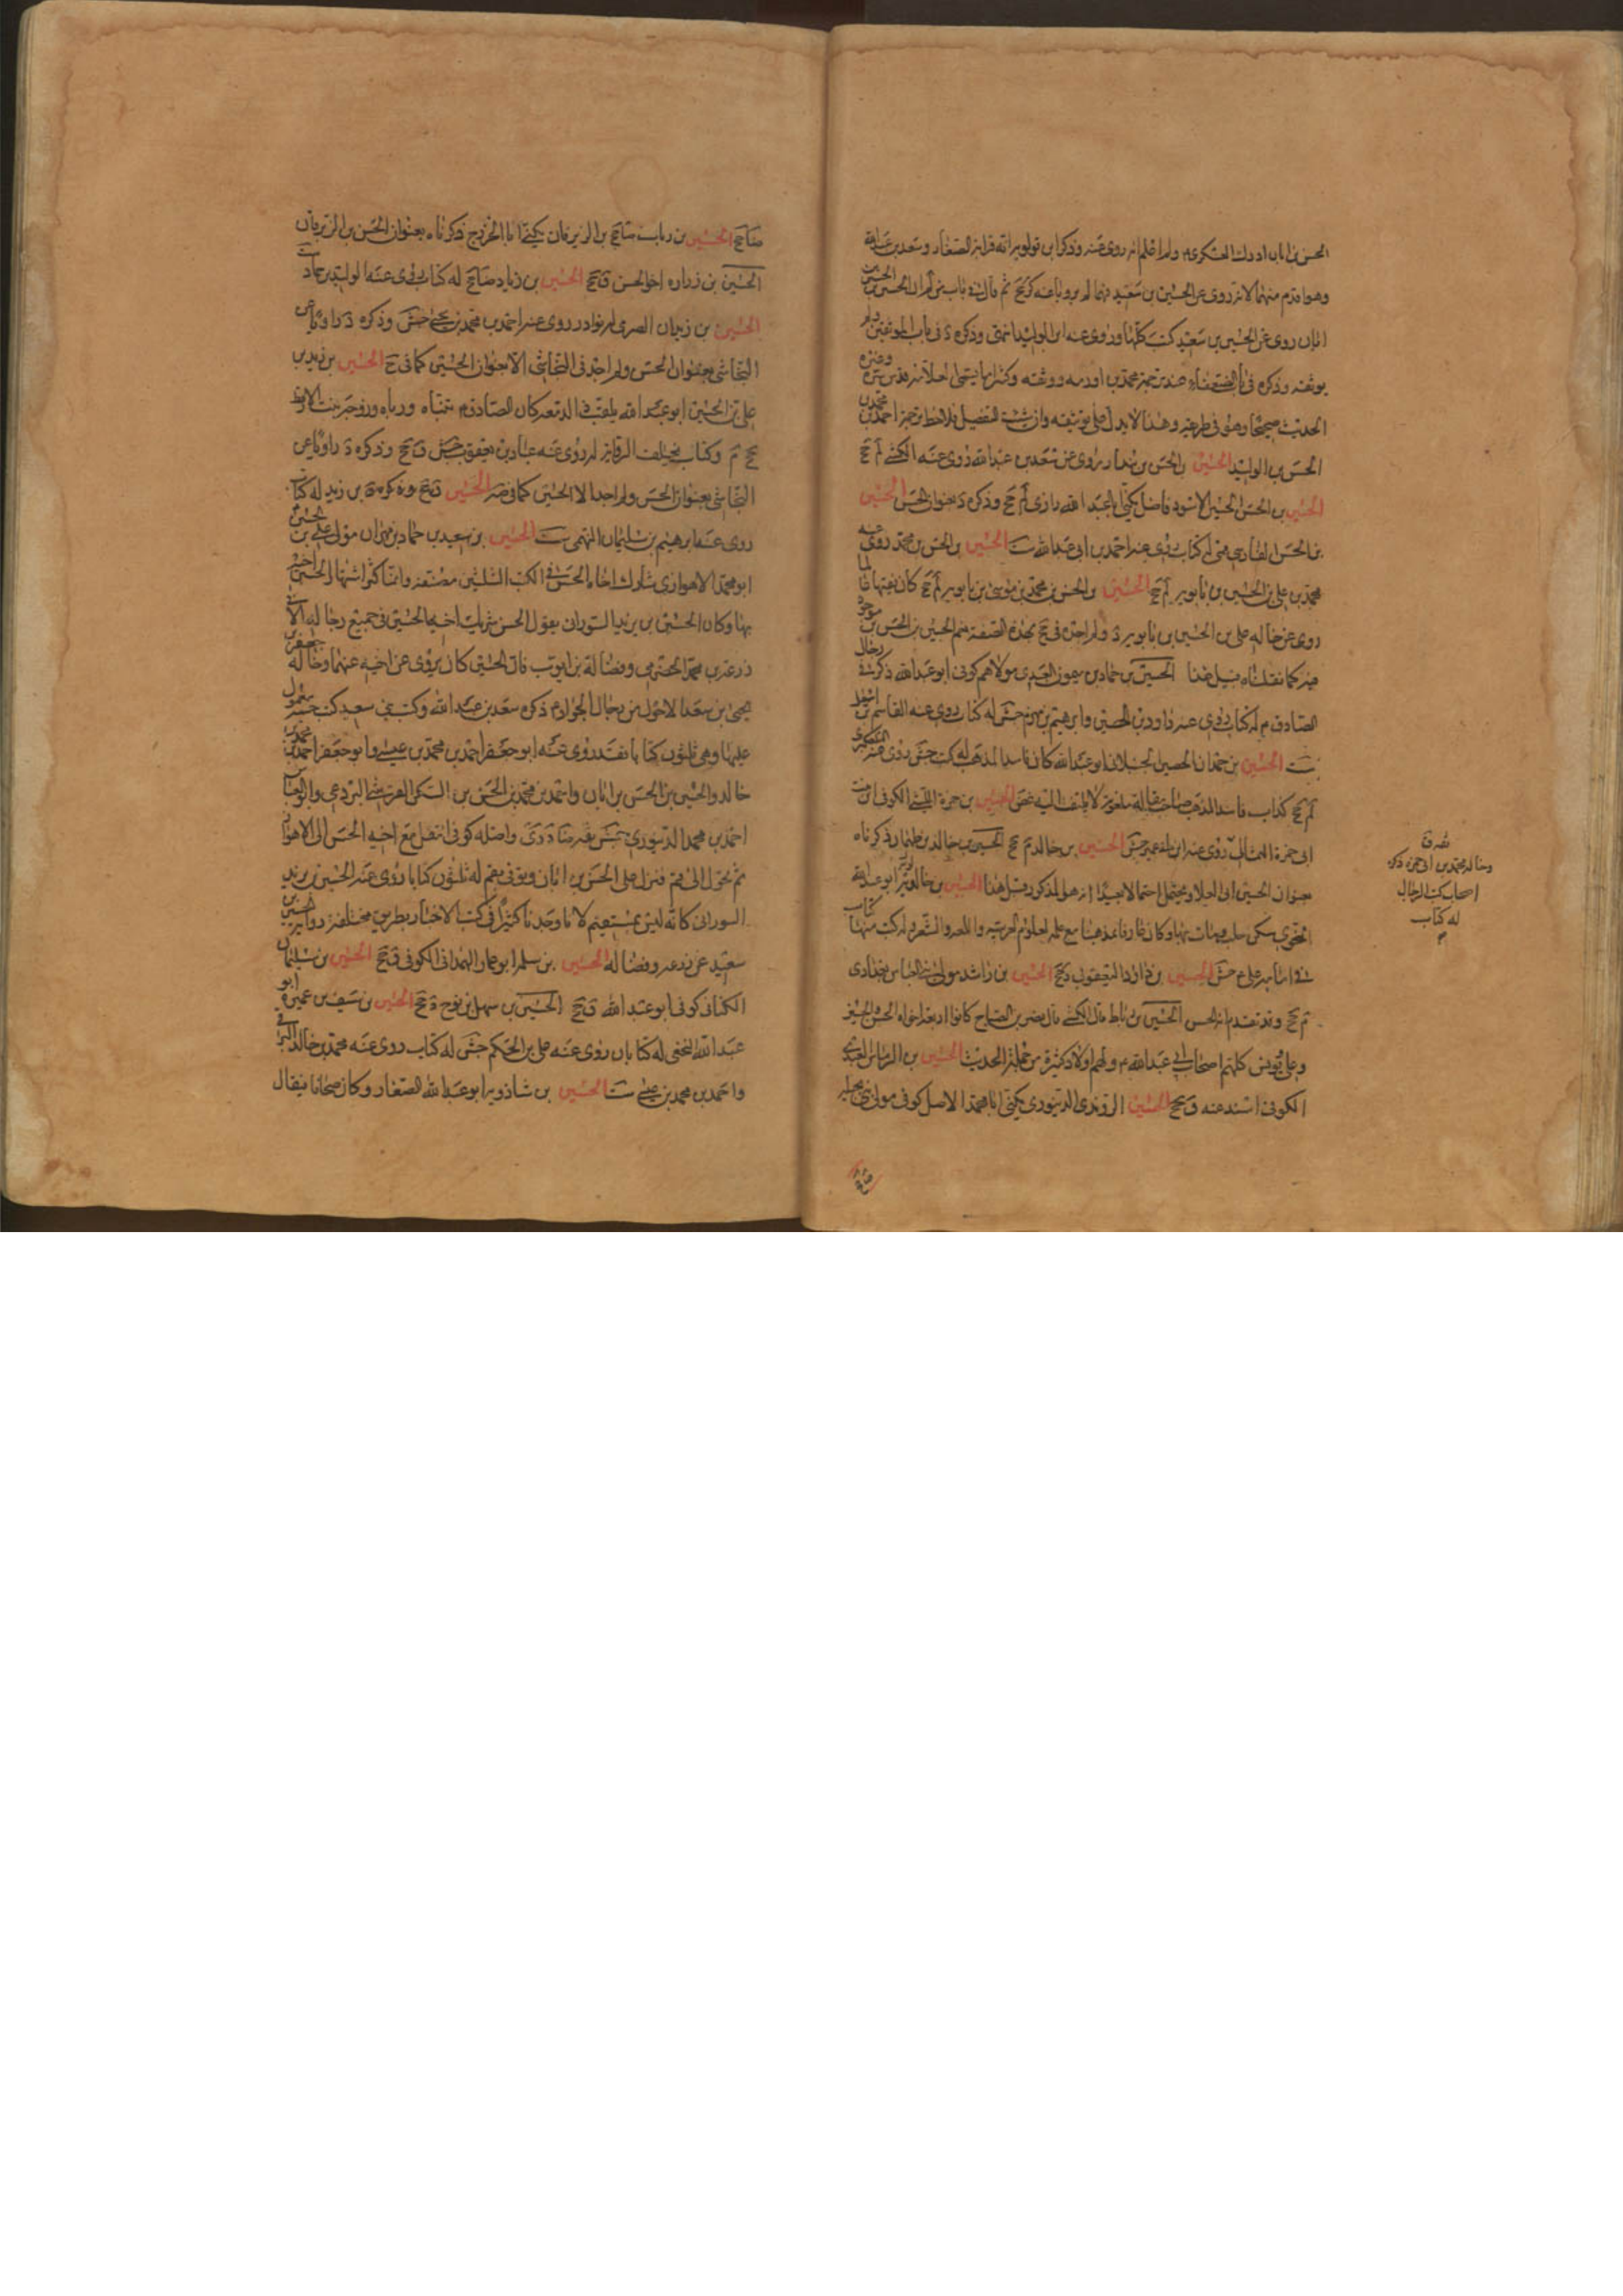 الحسن بن ابان ادرك العسكرى ولم اعلم انه روى عنه وذكر ابن قولويه انه قرابة الصفار وسعد بن عبد الله
وهو اقدم منهما لانه روى عن الحسين بن سعيد وهما لم يرويا عنه كر جخ ثم قال فى باب من لم ان الحسين بن الحسن بن
ابان روى عن الحسين بن سعيد كتبه كلها وروى عنه ابن الوليد انتهى وذكره د فى باب الموثقين ولم
يوثقه وذكره فى باب الضعفاء عند ترجمة محمد بن اورمة ووثقه
الحديث صحيحا وهو فى طريقه وهذا لا يدل على توثيقه وان شئت التفصيل فلاحظ ترجمة احمد بن محمد بن
الحسن بن الوليد الحسين بن الحسن بن بندار روى عن سعد بن عبد الله روى عنه الكشى لم جخ
الحسين بن الحسن الحسينى الاسود فاضل يكنى ابا عبد الله رازى لم جخ وذكره د بعنوان الحسن الحسين
بن الحسن الفارسى قمى له كتاب روى عنه احمد بن ابى عبد الله ست الحسين بن الحسن بن محمد روى عنه
محمد بن على بن الحسين بن بابويه لم جخ الحسين بن الحسن بن محمد بن موسى بن بابويه لم جخ كان فقيها عالما
روى عن خاله على بن الحسين بن بابويه د ولم اجده فى جخ بهذه الصفة نعم الحسين بن الحسن بن موجود
فيه كما نقلناه قبل هذا الحسين بن حماد بن ميمون العبدى مولاهم كوفى ابو عبد الله ذكر فى رجال
الصادق م له كتاب روى عنه داود بن الحصين وابرهيم بن مهزم جش له كتاب روى عنه القاسم بن اسمعيل
ست الحسين بن حمدان الحصينى الجنبلانى ابو عبد الله كان فاسد المذهب له كتب جش روى عنه التلعكبرى
لم جخ كذاب فاسد المذهب صاحب مقالة ملعونة لا يلتفت اليه غض الحسين بن حمزة الليثى الكوفى ابن بنت
ابى حمزة الثمالى روى عنه ابن ابى عمير جش الحسين بن خالد م جخ الحسين بن خالد بن طهمان ذكرناه
بعنوان الحسين ابى العلا ويحتمل احتمالا بعيدا انه هو المذكور قبل هذا الحسين بن خالويه ابو عبد الله
النحوى سكن حلب ومات بها وكان عارفا بمذهبنا مع علمه بعلوم العربية واللغة والشعر وله كتب منها كتاب
فى امامة على ع جش الحسين بن داود اليعقوبى دى جخ الحسين بن راشد مولى بنى العباس بغدادى
م جخ وقد تقدم انه الحسن الحسين بن رباط قال الكشى قال نصر بن الصباح كانوا اربعة اخوة الحسن والحسين
وعلى ويونس كلهم اصحاب ابى عبد الله م ولهم اولاد كثيرة من حملة الحديث الحسين بن الرماس العبدى
الكوفى اسند عنه ق جخ الحسين الروندى الدينورى يكنى ابا محمد الاصل كوفى مولى بنى
وخاله محمد بن ابى حمزة ذكره
اصحاب كتب الرجال
له كتاب
م
صا جخ الحسين بن رباب صا جخ بن الزبرقان يكنى ابا الخزرج ذكرناه بعنوان الحسن بن الزبرقان
الحسين بن زراره اخو الحسن ق جخ الحسين بن زياد ضا جخ له كتاب روى عنه الوليد بن حماد ست
الحسين بن زيدان الصرمى له نوادر روى عنه احمد بن محمد بن يحيى جش وذكره د راويا عن
النجاشى بعنوان الحسن ولم اجد فى النجاشى الا بعنوان الحسين كما فى ح الحسين بن زيد بن
على بن الحسين ابو عبد الله يلقب ذا الدمعة كان الصادق م تبناه ورباه وزوجه بنت الارقط
جخ م وكتابه يختلف الرواية له روى عنه عباد بن يعقوب جش ق جخ وذكره د راويا عن
النجاشى بعنوان الحسن ولم اجد الا الحسين كما فى ضح الحسين بن زيد له كتاب
روى عنه ابرهيم بن سليمان التهمى ست الحسين بن سعيد بن حماد بن مهران مولى على بن الحسين
ابو محمد الاهوازى شارك اخاه الحسن فى الكتب الثلثين مصنفة وانما كثر اشتهار الحسين اخيه
بها وكان الحسين بن يزيد السورانى يقول الحسن شريك اخيه الحسين فى جميع رجاله الا فى
زرعة بن محمد الحضرمى وفضالة بن ايوب فان الحسين كان يروى عن اخيه عنهما وخاله جعفر بن
يحيى بن سعد الاحول من رجال الجواد م ذكره سعد بن عبد الله وكتب بنى سعيد كتب حسنة معمول
عليها وهى ثلثون كتابا فقد روى عنه ابو جعفر احمد بن محمد بن عيسى وابو جعفر احمد بن محمد بن
خالد والحسين بن الحسن بن ابان واحمد بن محمد بن الحسن بن السكن القرشى البردعى وابو العباس
احمد بن محمد الدينورى جش ثقة ضا د دى واصله كوفى انتقل مع اخيه الحسن الى الاهواز
ثم تحول الى قم فنزل على الحسن بن ابان وتوفى بقم له ثلثون كتابا روى عنه الحسين بن يزيد
السورانى كانه ليس بمستقيم لانا وجدنا كثيرا فى كتب الاخبار بطريق مختلفة رواية الحسين بن
سعيد عن زرعة وفضالة الحسين بن سلمة ابو عمار الهمدانى الكوفى ق جخ الحسين بن سليمان
الكنانى كوفى ابو عبد الله ق جخ الحسين بن سهل بن نوح د جخ الحسين بن سيف بن عميرة ابو
عبد الله النخعى له كتابان روى عنه على بن الحكم جش له كتاب روى عنه محمد بن خالد البرقى
واحمد بن محمد بن عيسى ست الحسين بن شاذويه ابو عبد الله الصفار وكان صحافا فيقال